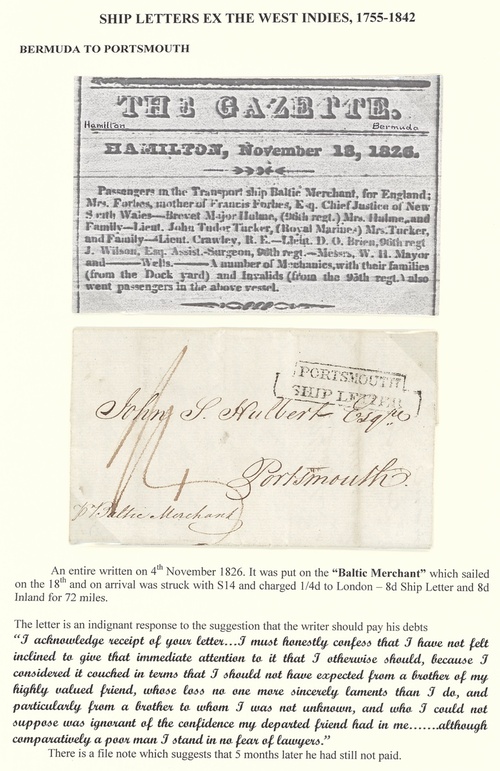 SHIP LETTERS EX THE WEST INDIES, 1755-1842
BERMUDA TO PORTSMOUTH
THE GAZETTE.
Hamilton Bermuda
HAMILTON, November 18, 1826.
Passengers in the Transport ship Baltic Merchant, for England;
Mrs. Forbes, mother of Francis Forbes, Esq. Chief Justice of New
South Wales—Brevet Major Hulme, (96th regt.) Mrs. Hulme, and
Family—Lieut. John Tudor Tucker, (Royal Marines) Mrs. Tucker,
and Family—Lieut. Crawley, R. E.—Lieut. D. O. Brien, 96th regt
J. Wilson, Esq. Assist.-Surgeon, 96th regt.—Messrs. W. H. Mayor
and —— Wells. —— A number of Mechanics, with their families
(from the Dock yard) and Invalids (from the 95th regt.) also
went passengers in the above vessel.
PORTSMOUTH
SHIP LETTER
John S. Hulbert Esqre
Portsmouth
1/4
pr Baltic Merchant
An entire written on 4th November 1826. It was put on the “Baltic Merchant” which sailed
on the 18th and on arrival was struck with S14 and charged 1/4d to London – 8d Ship Letter and 8d
Inland for 72 miles.
The letter is an indignant response to the suggestion that the writer should pay his debts
“I acknowledge receipt of your letter...I must honestly confess that I have not felt
inclined to give that immediate attention to it that I otherwise should, because I
considered it couched in terms that I should not have expected from a brother of my
highly valued friend, whose loss no one more sincerely laments than I do, and
particularly from a brother to whom I was not unknown, and who I could not
suppose was ignorant of the confidence my departed friend had in me.......although
comparatively a poor man I stand in no fear of lawyers.”
There is a file note which suggests that 5 months later he had still not paid.